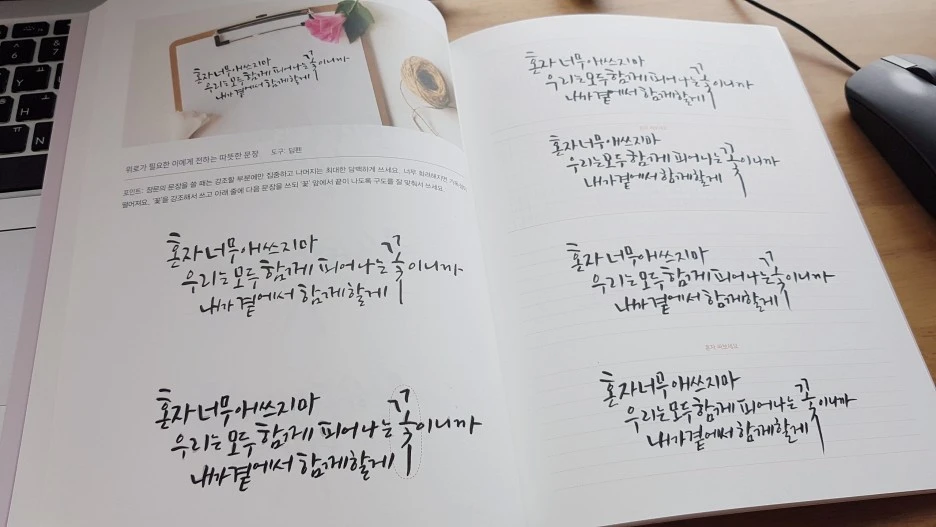 혼자 너무 애쓰지마
우리는 모두 함께 피어나는 꽃이니까
내가 곁에서 함께할게
위로가 필요한 이에게 전하는 따뜻한 문장 도구: 딥펜
포인트: 장문의 문장을 쓸 때는 강조할 부분에만 집중하고 나머지는 최대한 담백하게 쓰세요. 너무 화려해지면
떨어져요. '꽃'을 강조해서 쓰고 아래 줄에 다음 문장을 쓰되 '꽃' 앞에서 끝이 나도록 구도를 잘 맞춰서 쓰세요.
혼자 너무 애쓰지마
우리는 모두 함께 피어나는 꽃이니까
내가 곁에서 함께할게
혼자 너무 애쓰지마
우리는 모두 함께 피어나는 꽃이니까
내가 곁에서 함께할게
혼자 너무 애쓰지마
우리는 모두 함께 피어나는 꽃이니까
내가 곁에서 함께할게
혼자 너무 애쓰지마
우리는 모두 함께 피어나는 꽃이니까
내가 곁에서 함께할게
혼자 너무 애쓰지마
우리는 모두 함께 피어나는 꽃이니까
내가 곁에서 함께할게
혼자 써보세요
혼자 너무 애쓰지마
우리는 모두 함께 피어나는 꽃이니까
내가 곁에서 함께할게